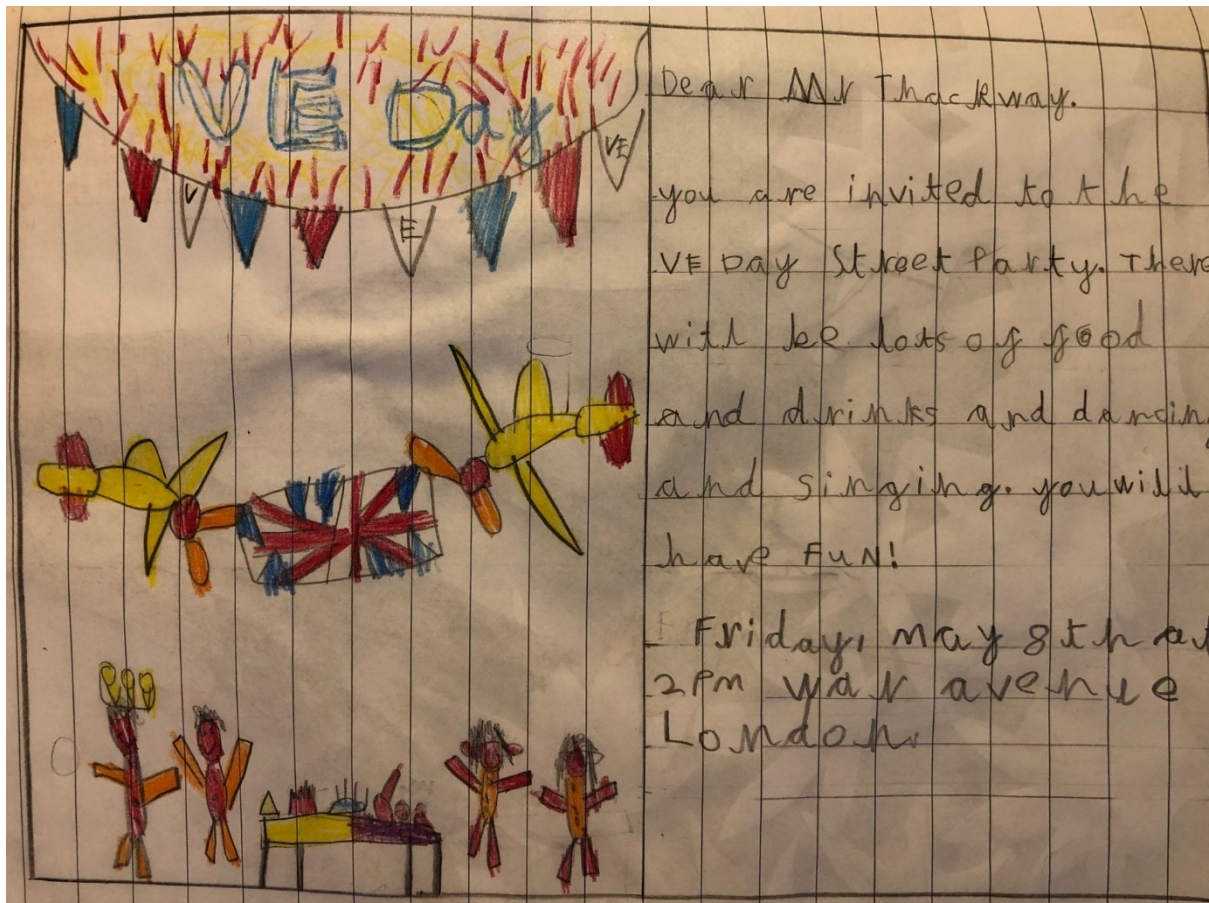 VE Day
V
E
VE
Dear Mr Thackway.
you are invited to the
VE Day Street Party. There
will be lots of food
and drinks and dancin
and singing. you will
have FUN!
Friday, may 8th at
2pm war avenue
London.